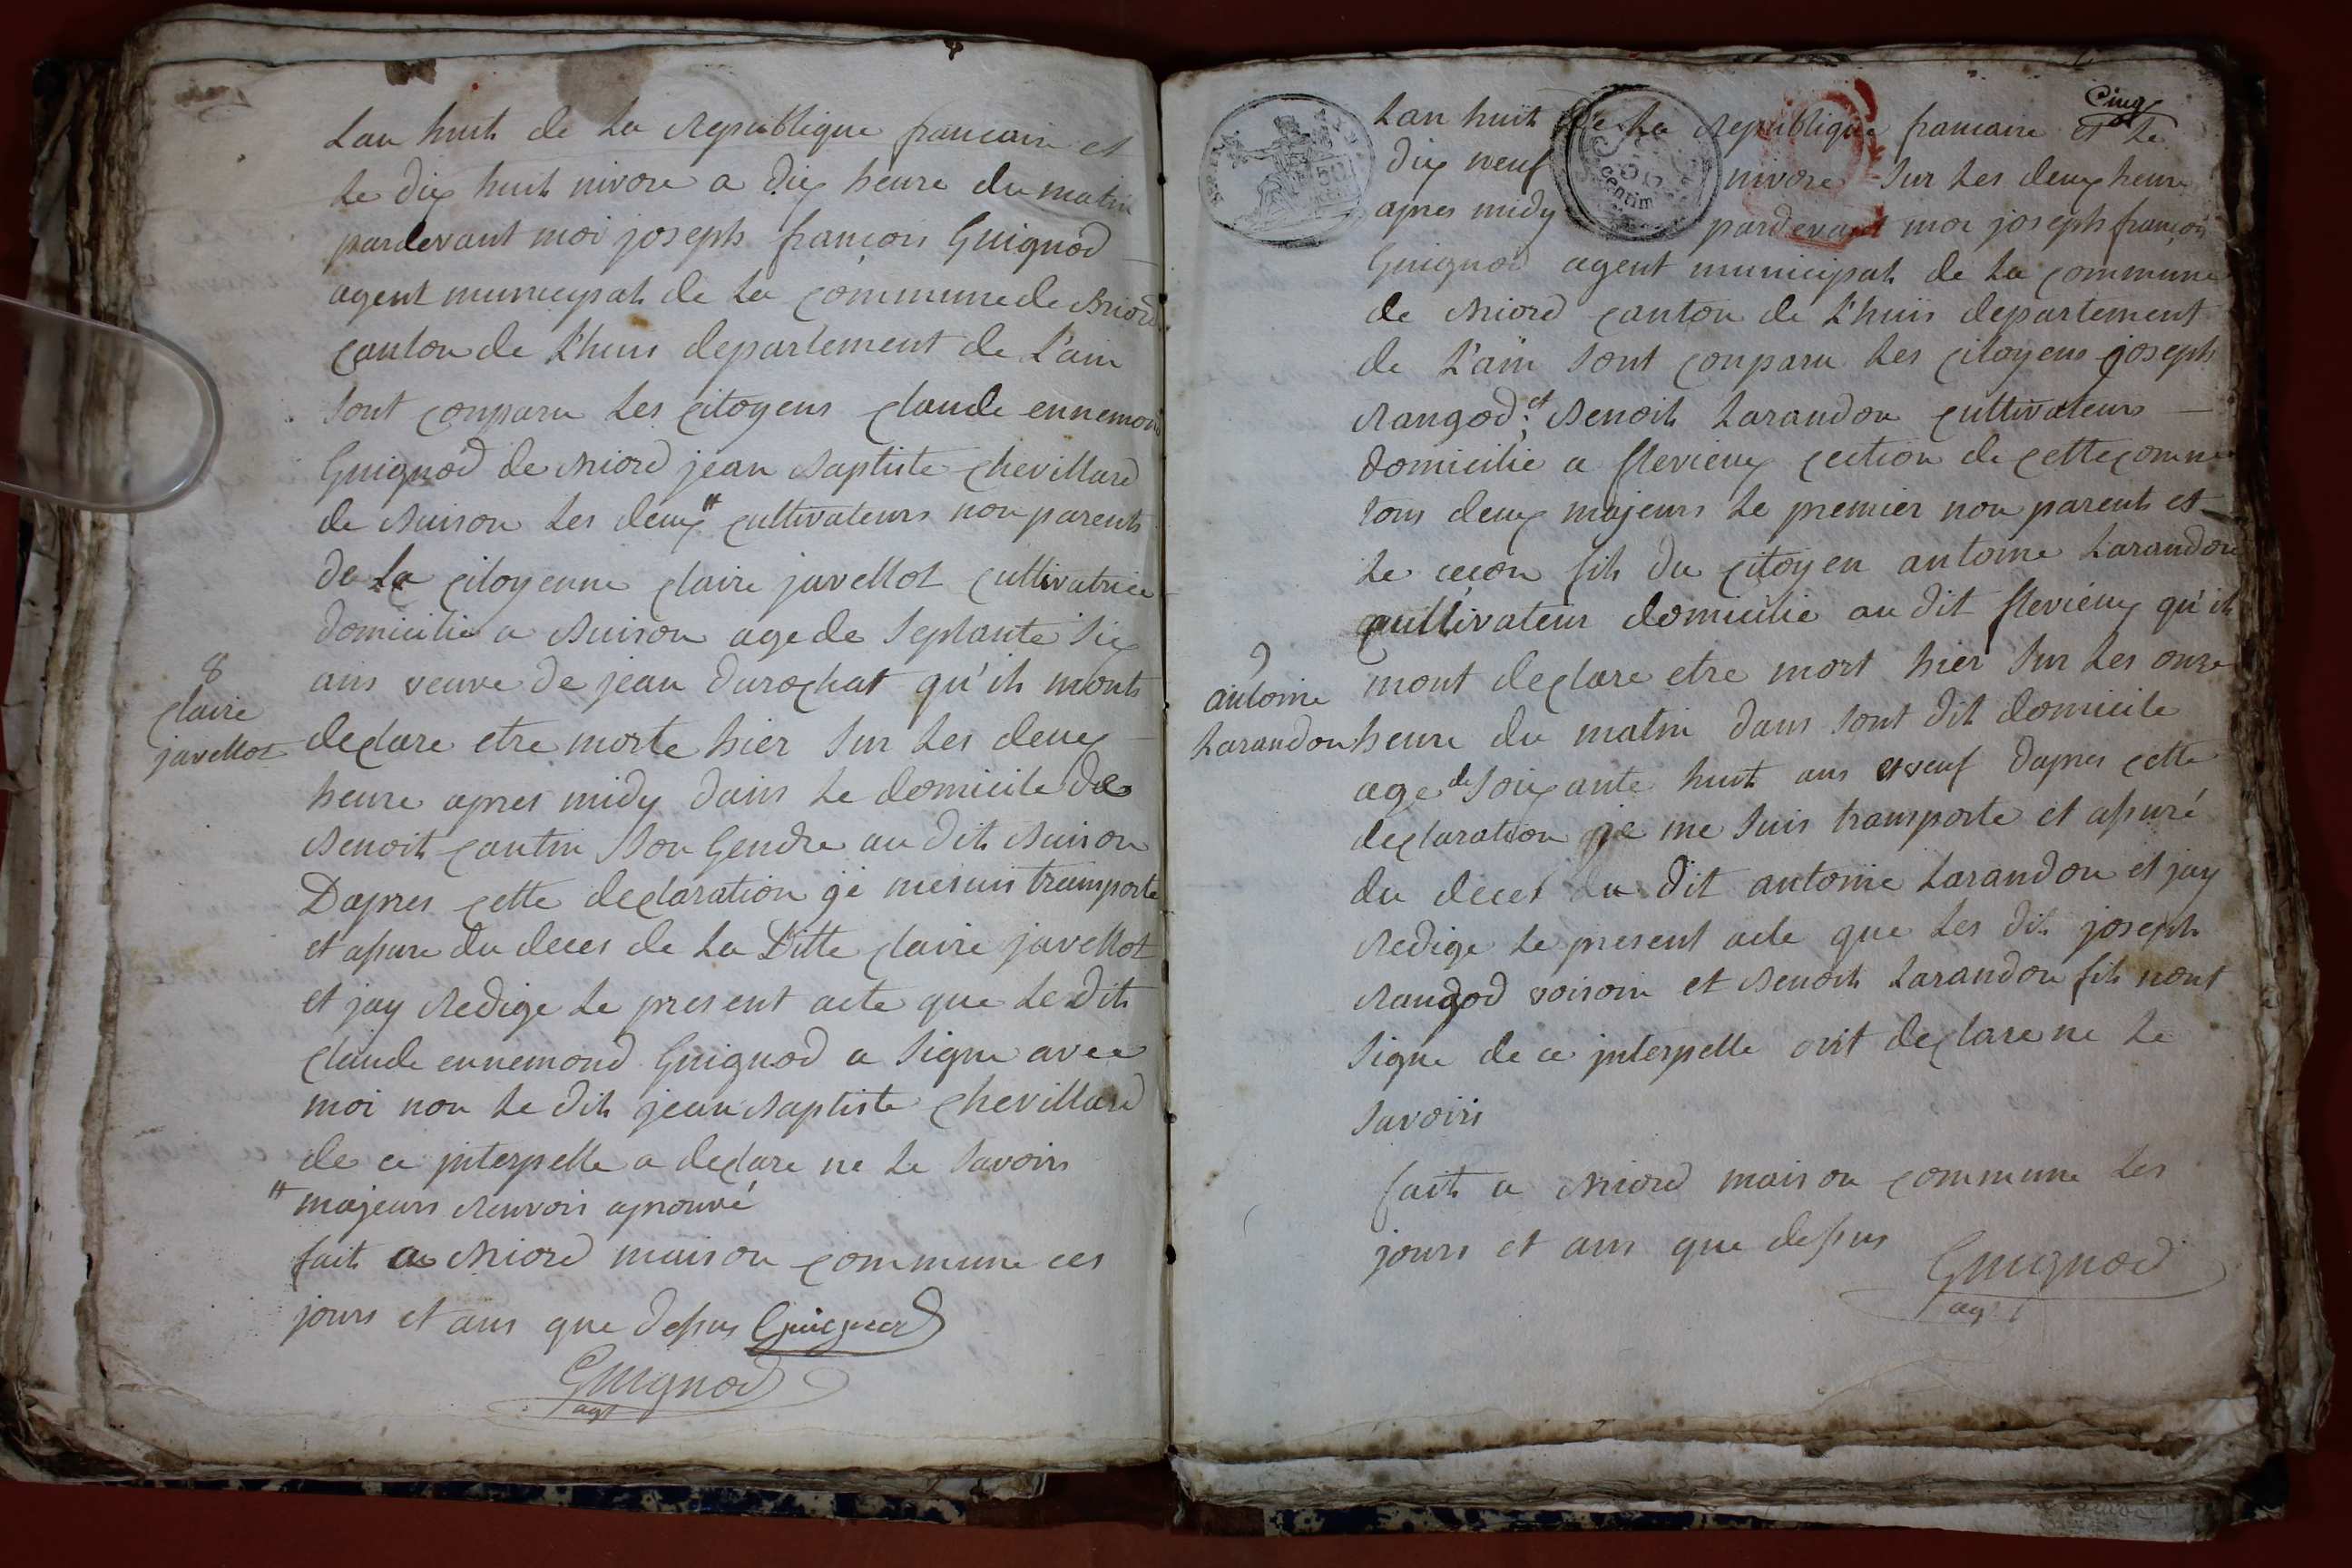 Lan huit de La Republique francaise et
Le dix huit nivose a dix heure du matin
pardevant moi joseph françois Guignod
agent municipal de La commune de Briord
canton de L'huis departement de L'ain
sont conparu Les citoyens claude ennemond
Guignod de Briord jean Baptiste chevillard
de Buison Les deux # cultivateurs non parents
de La citoyenne claire javellot cultivatrice
domicilie a Buison age de septante six
8
claire
javellot
ans veuve de jean Durochat qu'ils monts
declare etre morte hier sur Les deux
heure apres midy dans Le domicile de
Benoit cantin son Gendre au dit Buison
Dapres cette declaration gé mesuis transporte
et assure du deces de La Ditte claire javellot
et jay Redige Le present acte que Le dit
claude ennemond Guignod a signe avec
moi non Le dit jean Baptiste chevillard
de ce jnterpelle a declare ne Le savoirs
# majeurs Renvois aprouvé
fait a Briord maison commune ces
jours et ans que dessus Guignod
Guignod
agt
cinq
Lan huit de La Republique francaise et Le
dix neuf nivose sur Les deux heure
apres midy pardevant moi joseph françois
Guignod agent municipal de La commune
de Briord canton de L'huis departement
de L'ain sont conparu Les citoyens joseph
Rangod et Benoit Larandon cultivateurs
domicilié a flevieux cection de cette comune
tous deux majeurs Le premier non parents et
Le cecon fils du citoyen antoine Larandon
cultivateur domicilié au dit flevieux qu'ils
9
antoine
Larandon
mont declare etre mort hier sur Les onze
heure du matin dans sont dit domicile
age de soixante huit ans et veuf dapres cette
declaration je me suis transporte et assuré
du deces du dit antoine Larandon et jay
Redige Le present acte que Les dit joseph
Rangod voisoin et Benoit Larandon fils nont
signe de ce jnterpelle ont declare ne Le
savoirs
fait a Briord maison commune Les
jours et ans que dessus
Guignod
agt